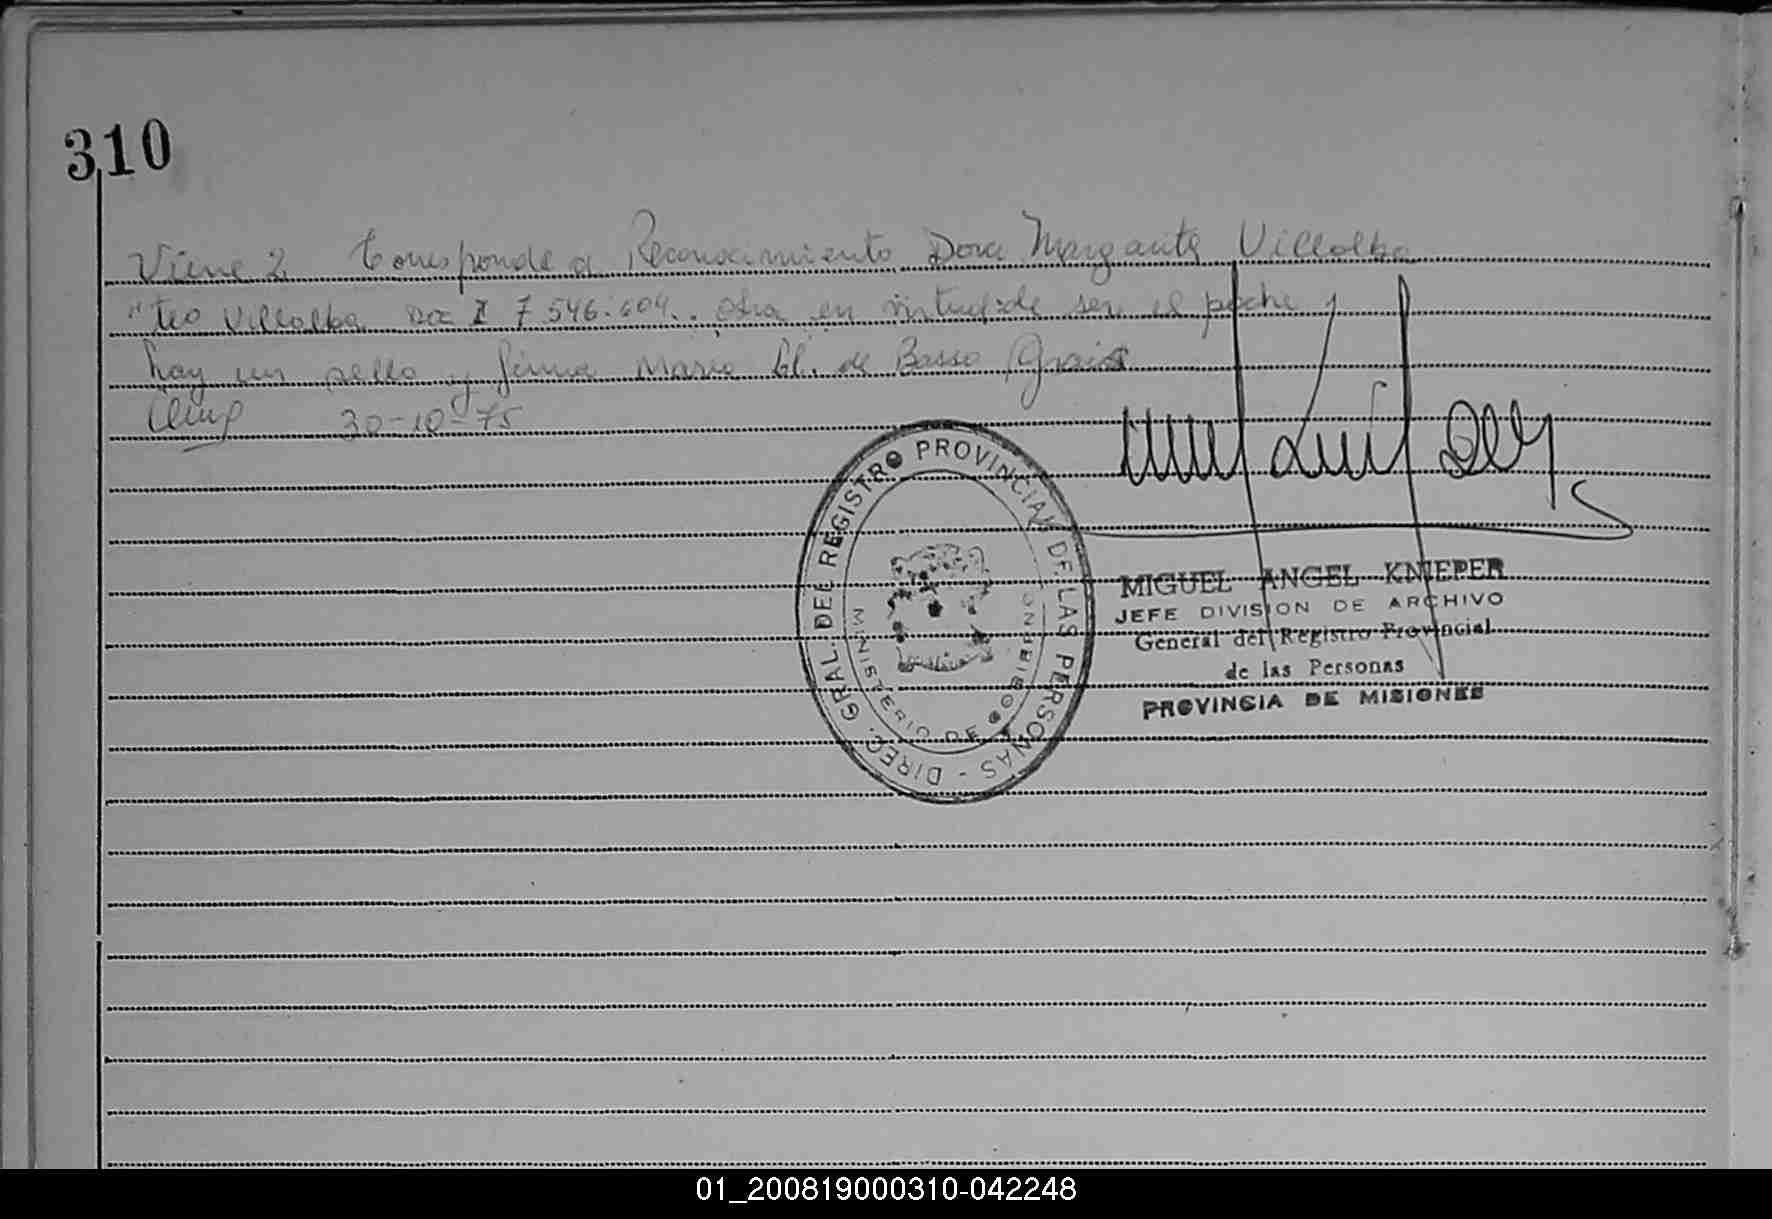 310
Viene 2 Corresponde a Reconocimiento Dora Margarita Villalba
"teo Villalba Doc I 7.546.604.. otra en virtud de ser el padre y
hay un sello y firma Maria El. de Basso
30-10-75
DIREC. GRAL. DEL REGISTRO PROVINCIAL DE LAS PERSONAS -
MINISTERIO DE GOBIERNO
MIGUEL ANGEL KNIEPER
JEFE DIVISION DE ARCHIVO
General del Registro Provincial
de las Personas
PROVINCIA DE MISIONES
01_200819000310-042248